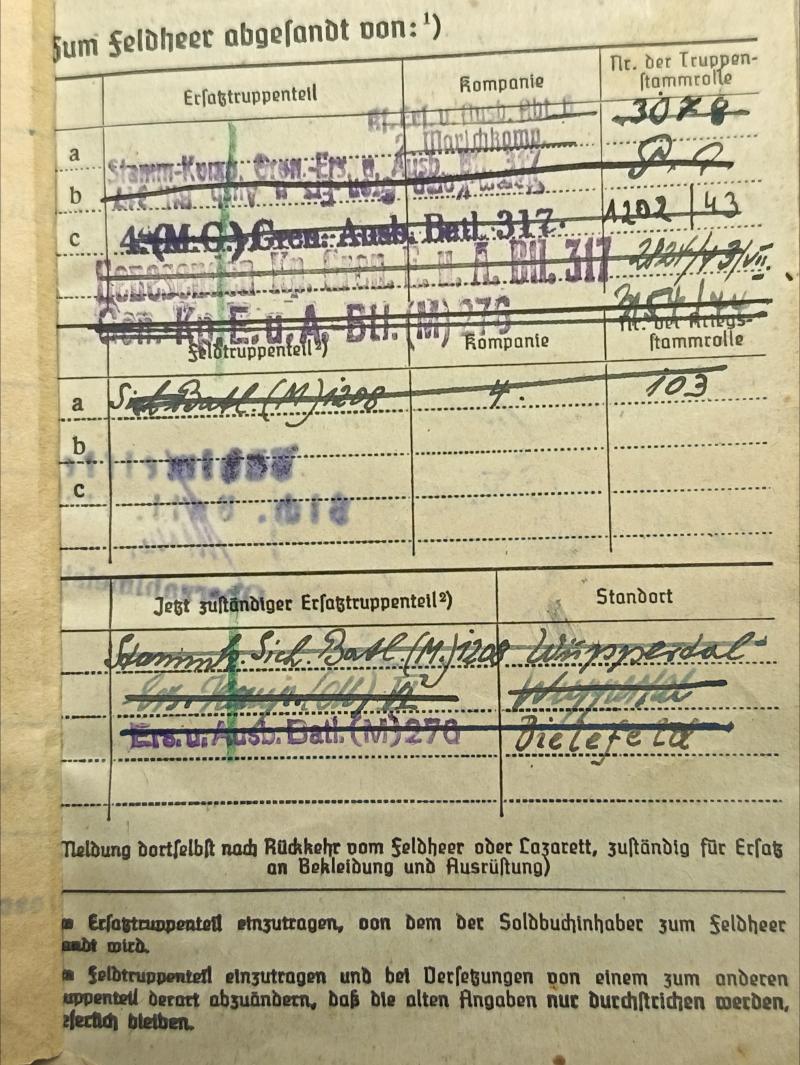 Zum Feldheer abgesandt von:¹)
Ersatztruppenteil Kompanie Nr. der Truppen-
stammrolle
Ausb. Abt. 6 3078
a 2. Marschkomp.
Stamm-Komp. Gren.-Ers. u. Ausb. Btl. 317
b
c 4. (M.G.) Gren. Ausb. Batl. 317. 1202/43
Genesenden Kp. Gren. E. u. A. Btl. 317 2124/43/VII.
Gen.-Kp. E. u. A.-Btl. (M) 276 3154/44
Feldtruppenteil²) Kompanie Nr. der Kriegs-
stammrolle
a Sich Batl (M) 1208 4. 103
b
c
Sich.
Jetzt zuständiger Ersatztruppenteil²) Standort
Stammk. Sich. Batl. (M.) 1208 Wuppertal
Wuppertal
Ers. u. Ausb. Batl. (M) 276 Bielefeld
Meldung dortselbst nach Rückkehr vom Feldheer oder Lazarett, zuständig für Ersatz
an Bekleidung und Ausrüstung)
Ersatztruppenteil einzutragen, von dem der Soldbuchinhaber zum Feldheer
wird.
Feldtruppenteil einzutragen und bei Versetzungen von einem zum anderen
uppenteil derart abzuändern, daß die alten Angaben nur durchstrichen werden,
eserlich bleiben.